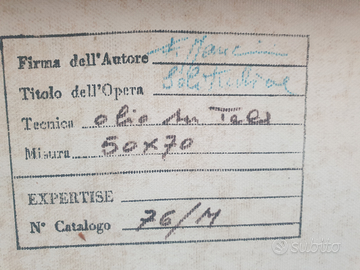 Firma dell'Autore F. Mancini
Titolo dell'Opera Solitudine
Tecnica olio su Tela
Misura 50x70
EXPERTISE
N° Catalogo 76/M
subito